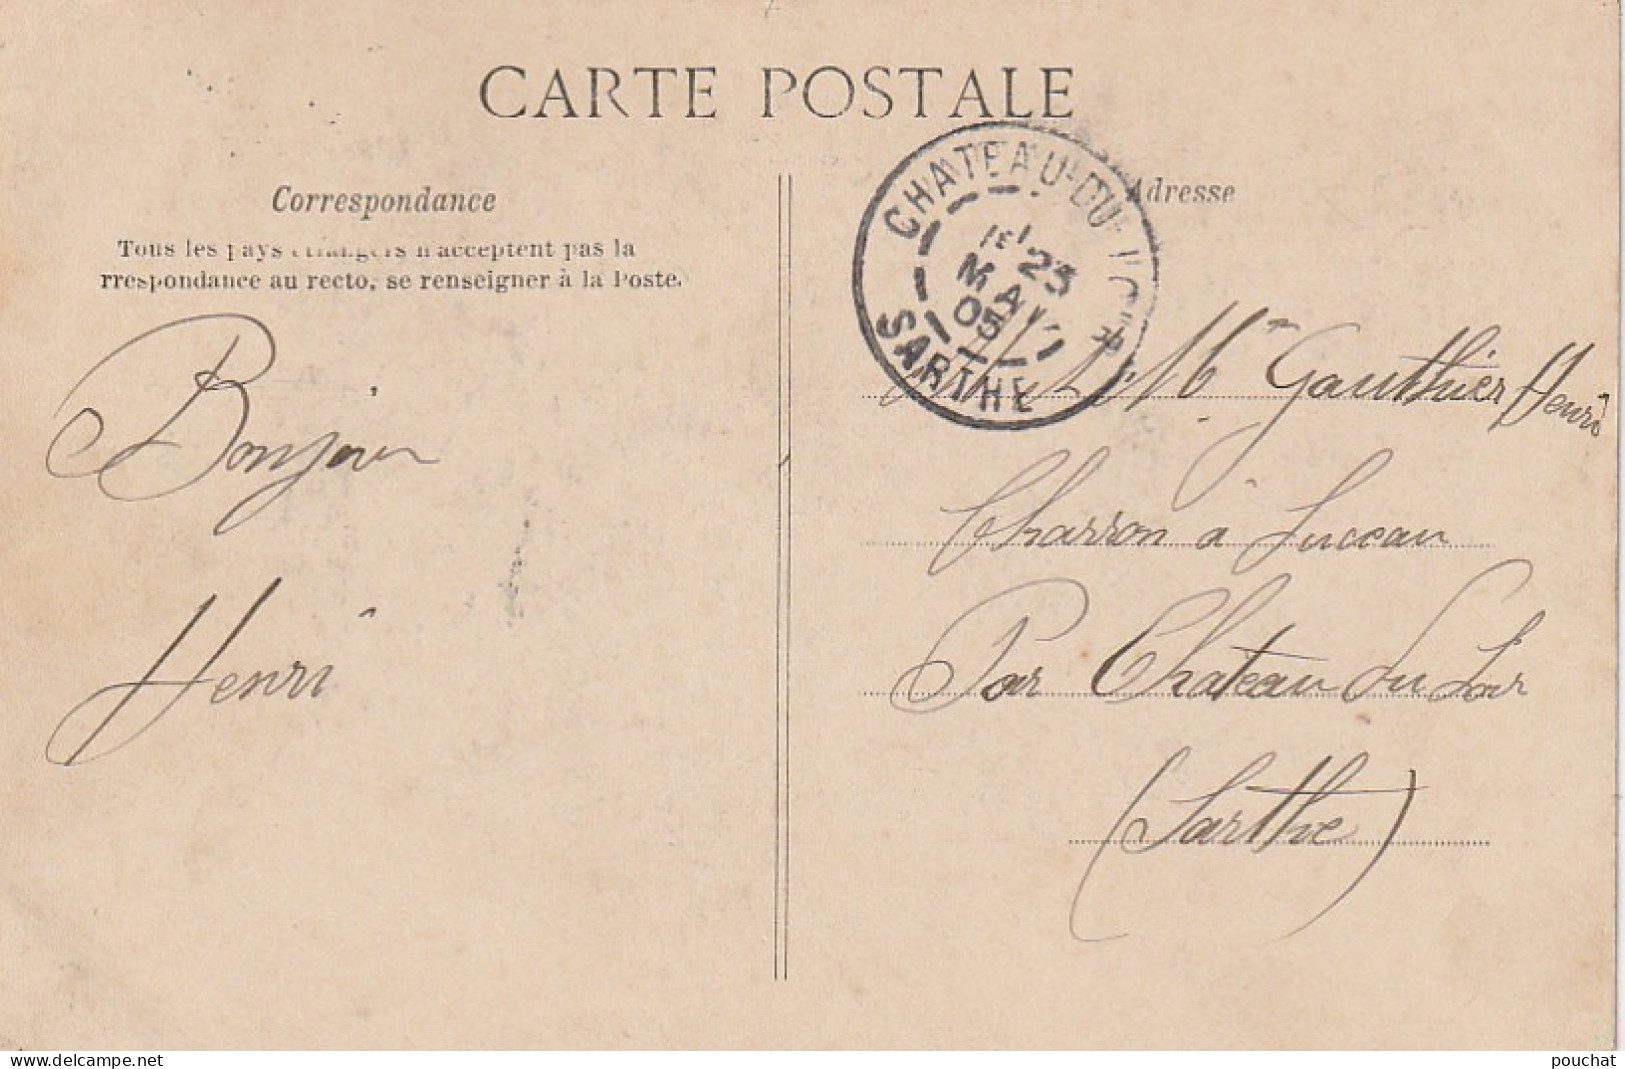 CARTE POSTALE
Correspondance
Tous les pays étrangers n'acceptent pas la
rrespondance au recto, se renseigner à la Poste.
Bonjour
Henri
Adresse
CHATEAU-DU-
23
MAI
05
SARTHE
Gauthier Henri
Charron à Luceau
Par Chateau du Loir
(Sarthe)
www.delcampe.net
pouchat